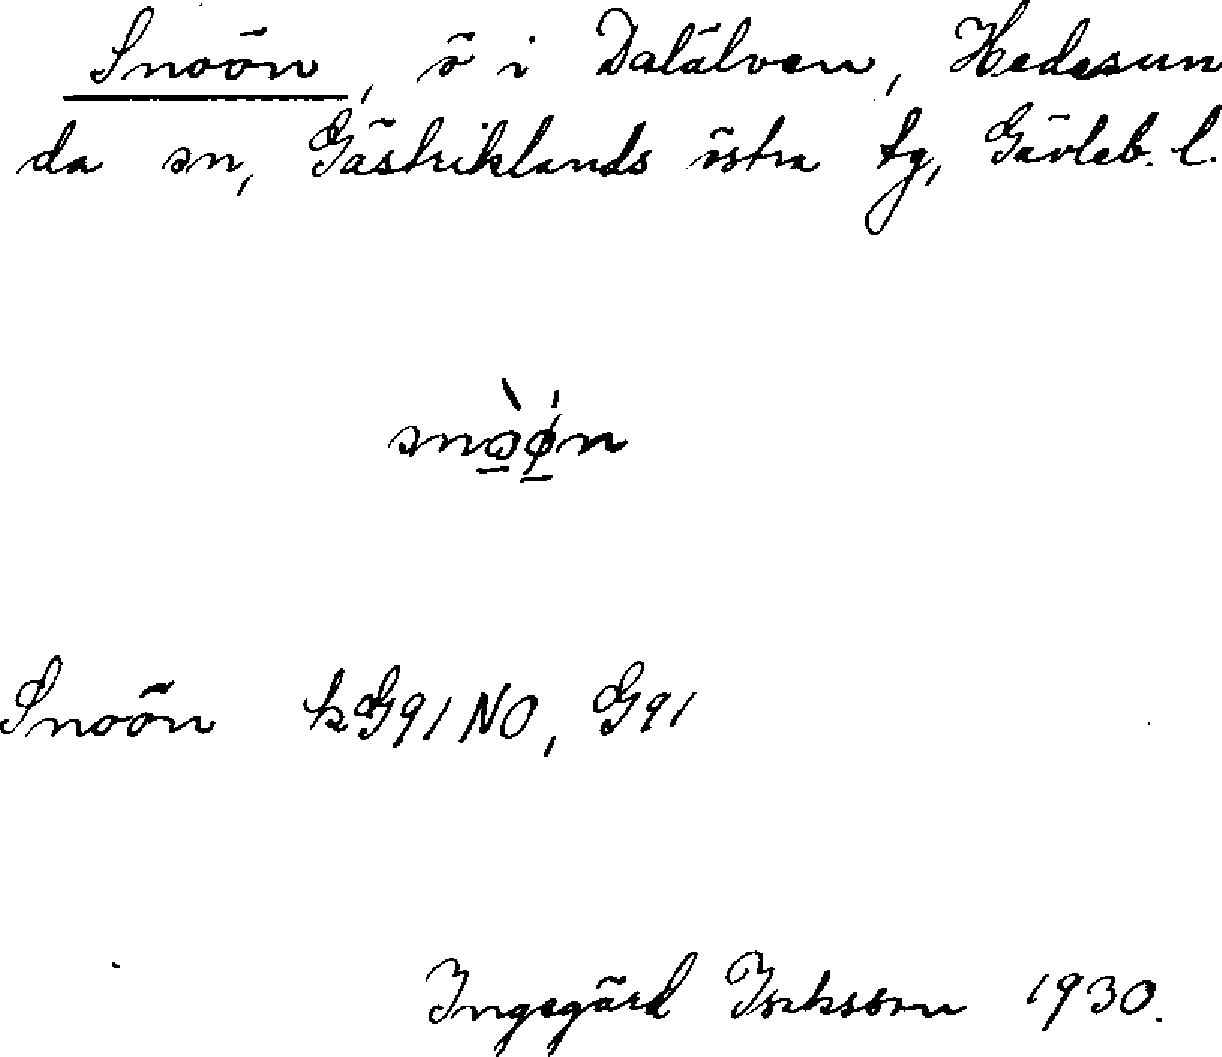 Snoön, ö i Dalälven, Hedesun
da sn, Gästriklands östra tg, Gävleb. l.
Snoön kG91NO, G91
Ingegärd Isaksson 1930.